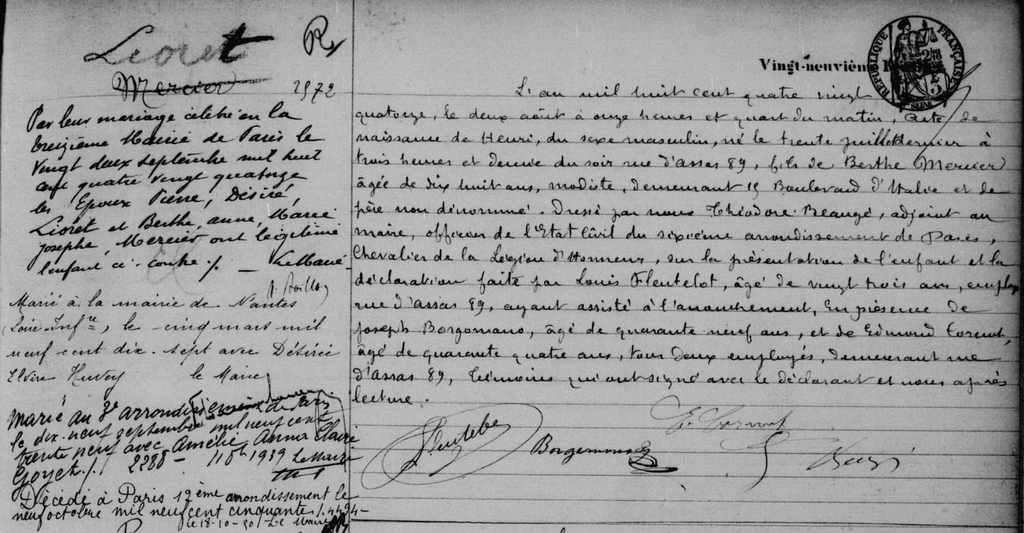 Lioret
R
Mercier
2972
Par leur mariage célébré en la
treizième Mairie de Paris le
vingt deux septembre mil huit
cent quatre vingt quatorze
les Epoux Pierre, Désiré,
Lioret et Berthe, Anne, Marie
Josephe, Mercier ont légitimé
l'enfant ci-contre ./. Le Maire
Marié à la mairie de Nantes
(Loire Infre), le cinq mars mil
neuf cent dix-sept avec Désirée
Elvire Huvey le Maire
Marié au 3e arrondissement de Paris
le dix-neuf septembre mil neuf cent
trente neuf avec Amélie Anna Claire
Goyet ./. 2288 - 1939 Le Maire
Décédé à Paris 12ème arrondissement le
neuf octobre mil neuf cent cinquante ./. 4494-
le 18-10-50 Le Maire
Vingt-neuvième
RÉPUBLIQUE FRANÇAISE
SEINE
L'an mil huit cent quatre vingt
quatorze, le deux août à onze heures et quart du matin, acte de
naissance de Henri, du sexe masculin, né le trente juillet dernier à
trois heures et demie du soir rue d'Assas 89, fils de Berthe Mercier
âgée de dix huit ans, modiste, demeurant 15 Boulevard d'Italie et de
père non dénommé. Dressé par nous Théodore Beaugé, adjoint au
maire, officier de l'Etat Civil du sixième arrondissement de Paris,
Chevalier de la Légion d'Honneur, sur la présentation de l'enfant et la
déclaration faite par Louis Fleutelot, âgé de vingt trois ans, employé
rue d'Assas 89, ayant assisté à l'accouchement, En présence de
Joseph Borgomano, âgé de quarante neuf ans, et de Edmond Cornut,
âgé de quarante quatre ans, tous deux employés, demeurant rue
d'Assas 89, témoins qui ont signé avec le déclarant et nous après
lecture.
E. Cornut
Fleutelot
Borgomano